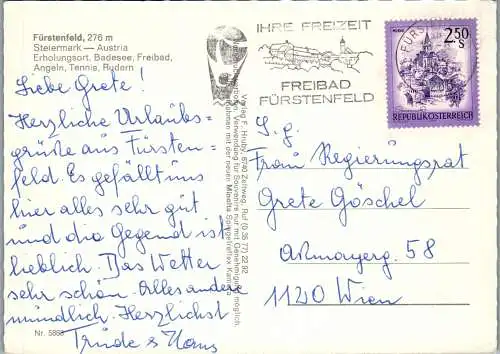 Fürstenfeld, 276 m
Steiermark — Austria
Erholungsort. Badesee, Freibad,
Angeln, Tennis, Rudern
Liebe Grete!
Herzliche Urlaubs-
grüße aus Fürsten-
feld. Es gefällt uns
hier alles sehr gut
und die Gegend ist
lieblich. Das Wetter
sehr schön. Alles andere
mündlich. Herzlichst
Trude & Hans
Nr. 5868
Verlag F. Hruby, 8740 Zeltweg, Ruf (0 35 77) 22 92
Verwendung für Souvenirs nur mit Genehmigung möglich.
mit der neuen Minolta Spiegelreflex Kamera
IHRE FREIZEIT
FREIBAD
FÜRSTENFELD
2.50
S
REPUBLIK ÖSTERREICH
S. g.
Frau Regierungsrat
Grete Göschel
Aßmayerg. 58
1120 Wien